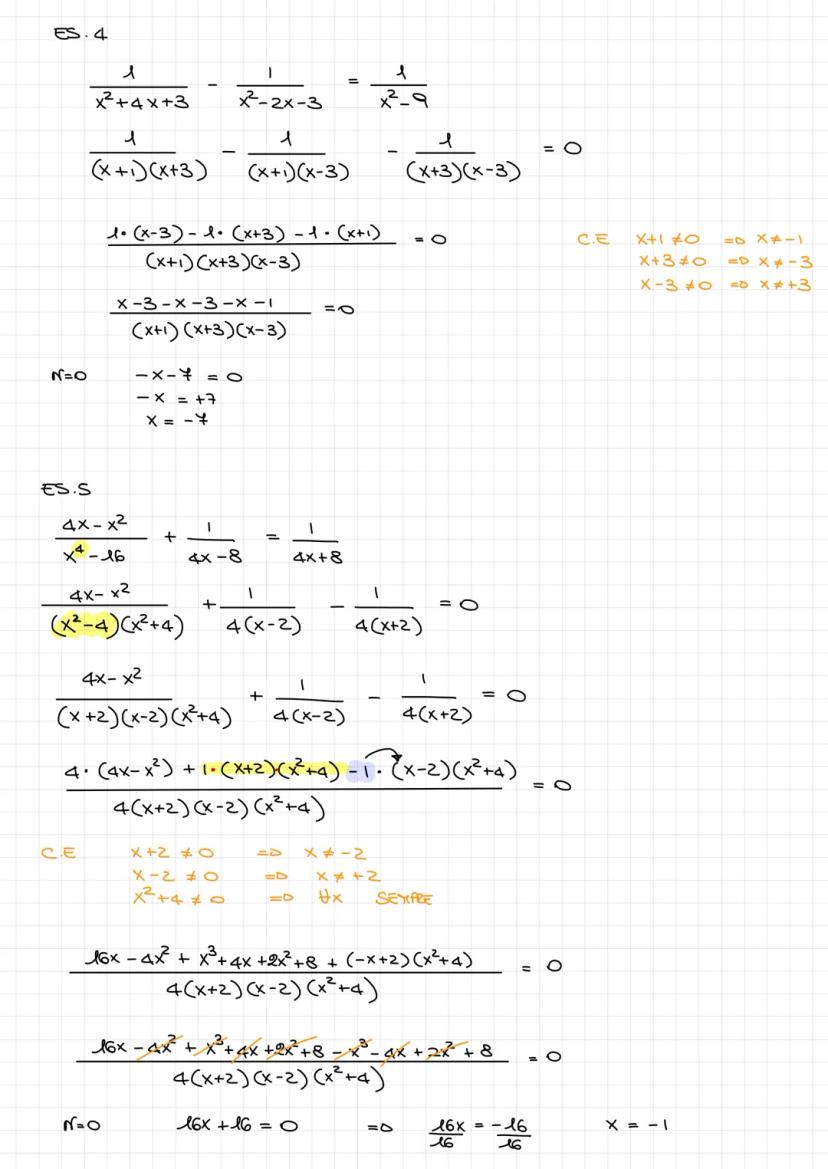 ES. 4
1/(x²+4x+3) - 1/(x²-2x-3) = 1/(x²-9)
1/((x+1)(x+3)) - 1/((x+1)(x-3)) - 1/((x+3)(x-3)) = 0
(1·(x-3) - 1·(x+3) - 1·(x+1))/((x+1)(x+3)(x-3)) = 0
C.E x+1≠0 => x≠-1
x+3≠0 => x≠-3
x-3≠0 => x≠+3
(x-3-x-3-x-1)/((x+1)(x+3)(x-3)) = 0
N=0 -x-7 = 0
-x = +7
x = -7
ES.5
(4x-x²)/(x⁴-16) + 1/(4x-8) = 1/(4x+8)
(4x-x²)/((x²-4)(x²+4)) + 1/(4(x-2)) - 1/(4(x+2)) = 0
(4x-x²)/((x+2)(x-2)(x²+4)) + 1/(4(x-2)) - 1/(4(x+2)) = 0
(4·(4x-x²) + 1·(x+2)·(x²+4) - 1·(x-2)(x²+4))/(4(x+2)(x-2)(x²+4)) = 0
C.E x+2≠0 => x≠-2
x-2≠0 => x≠+2
x²+4≠0 => ∀x SEMPRE
(16x-4x²+x³+4x+2x²+8+(-x+2)(x²+4))/(4(x+2)(x-2)(x²+4)) = 0
(16x-4x²+x³+4x+2x²+8-x³-4x+2x²+8)/(4(x+2)(x-2)(x²+4)) = 0
N=0 16x+16 = 0 => 16x/16 = -16/16 x = -1